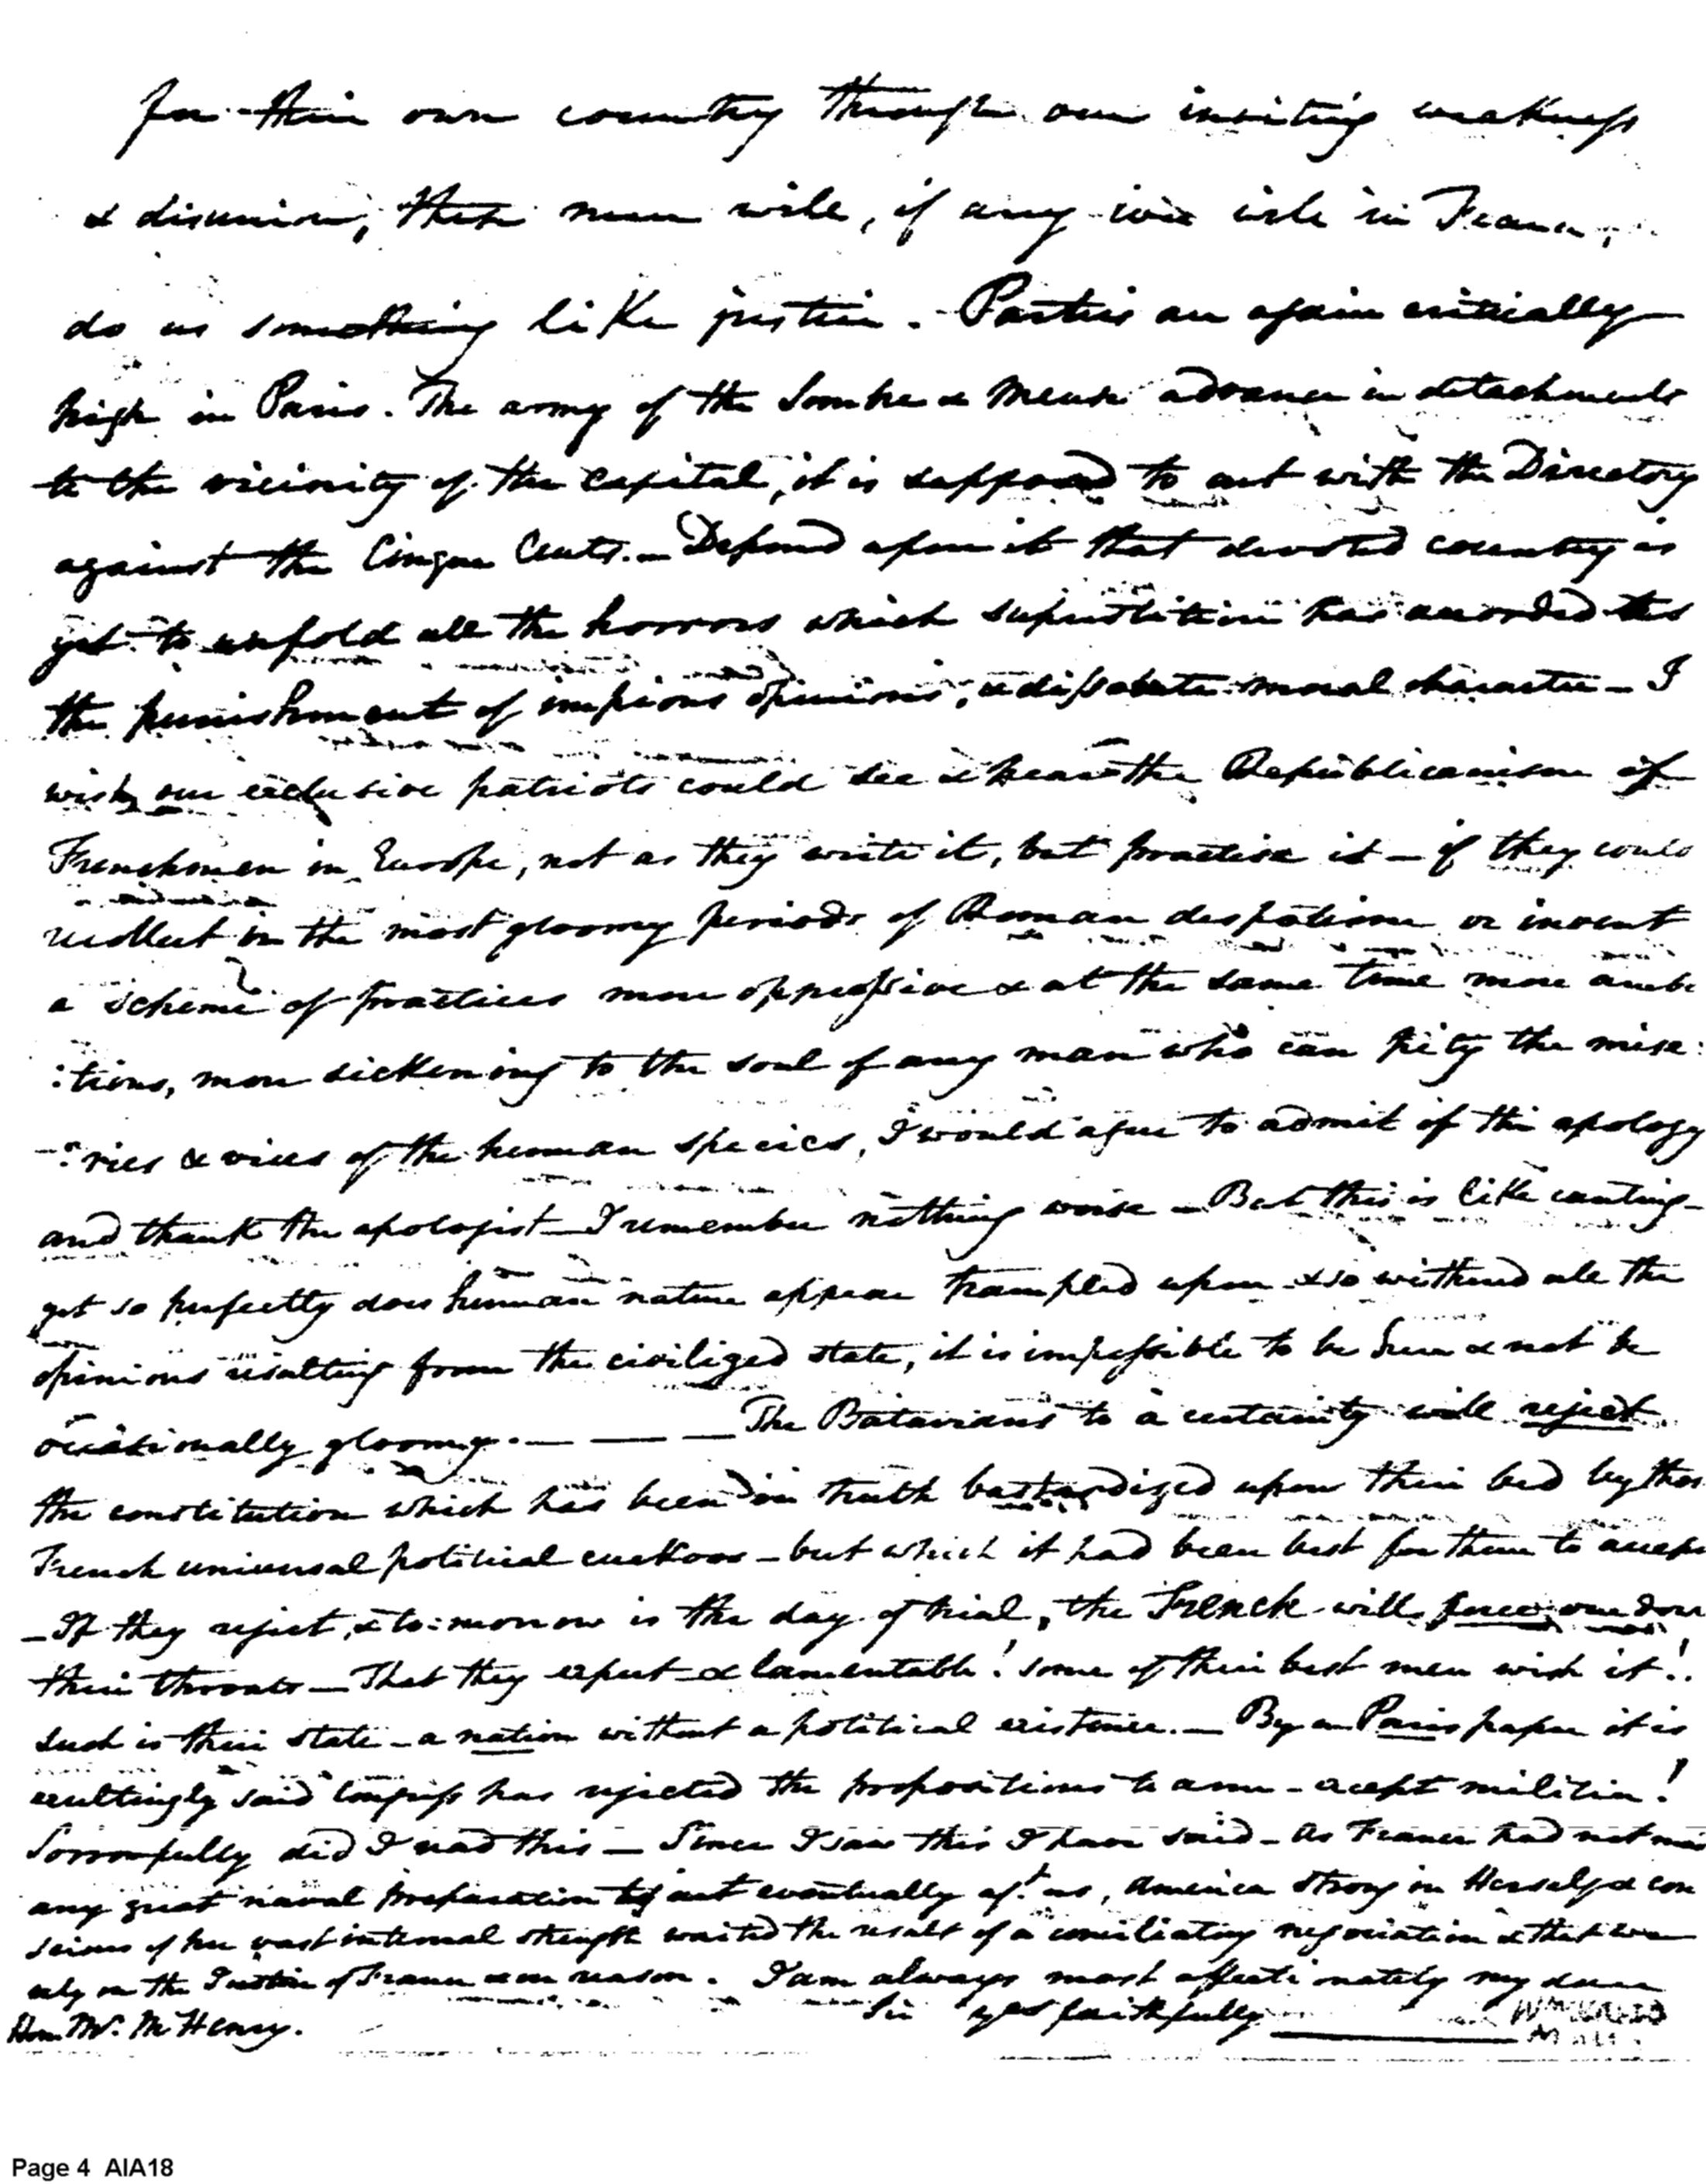 for their own country through our inviting weakness
& disunion, these men will, if any will in France,
do us something like justice. - Parties are again critically
high in Paris. The army of the Sombre & Meuse advance in detachments
to the vicinity of the Capital, it is supposed to act with the Directory
against the Cinque Cents. - Depend upon it that devoted country is
yet to unfold all the horrors which superstition has awarded
the punishment of impious opinions, & dissolute moral character - I
wish our exclusive patriots could see & hear the Republicanism of
Frenchmen in Europe, not as they write it, but practise it - if they could
recollect in the most gloomy periods of Roman despotism or invent
a scheme of practices more oppressive & at the same time more ambi
:tious, more sickening to the soul of any man who can pity the mise:
-:ries & vices of the human species, I would agree to admit of the apology
and thank the apologist - I remember nothing worse - But this is like canting -
yet so perfectly does human nature appear trampled upon & so withered all the
opinions resulting from the civilized state, it is impossible to be here & not be
occasionally gloomy. - — — — The Batavians to a certainty will reject
the constitution which has been in truth bastardized upon their bed by thos
French universal political cuckoos - but which it had been best for them to accept
- If they reject, & to:morrow is the day of trial, the French will force one down
their throats - That they expect & lamentable! some of their best men wish it!.
Such is their state - a nation without a political existence. - By a Paris paper it is
exultingly said Congress has rejected the propositions to arm - except militia!
Sorrowfully did I read this - Since I saw this I have said - As France had not ma
any great naval preparation to act eventually agt. us, America strong in Herself & con
scious of her vast internal strength waited the result of a conciliating negociation & that we
rely on the Justice of France & on reason. I am always most affectionately my dear
Sir yrs faithfully
Hon. Mr. McHenry.
Page 4 AIA18